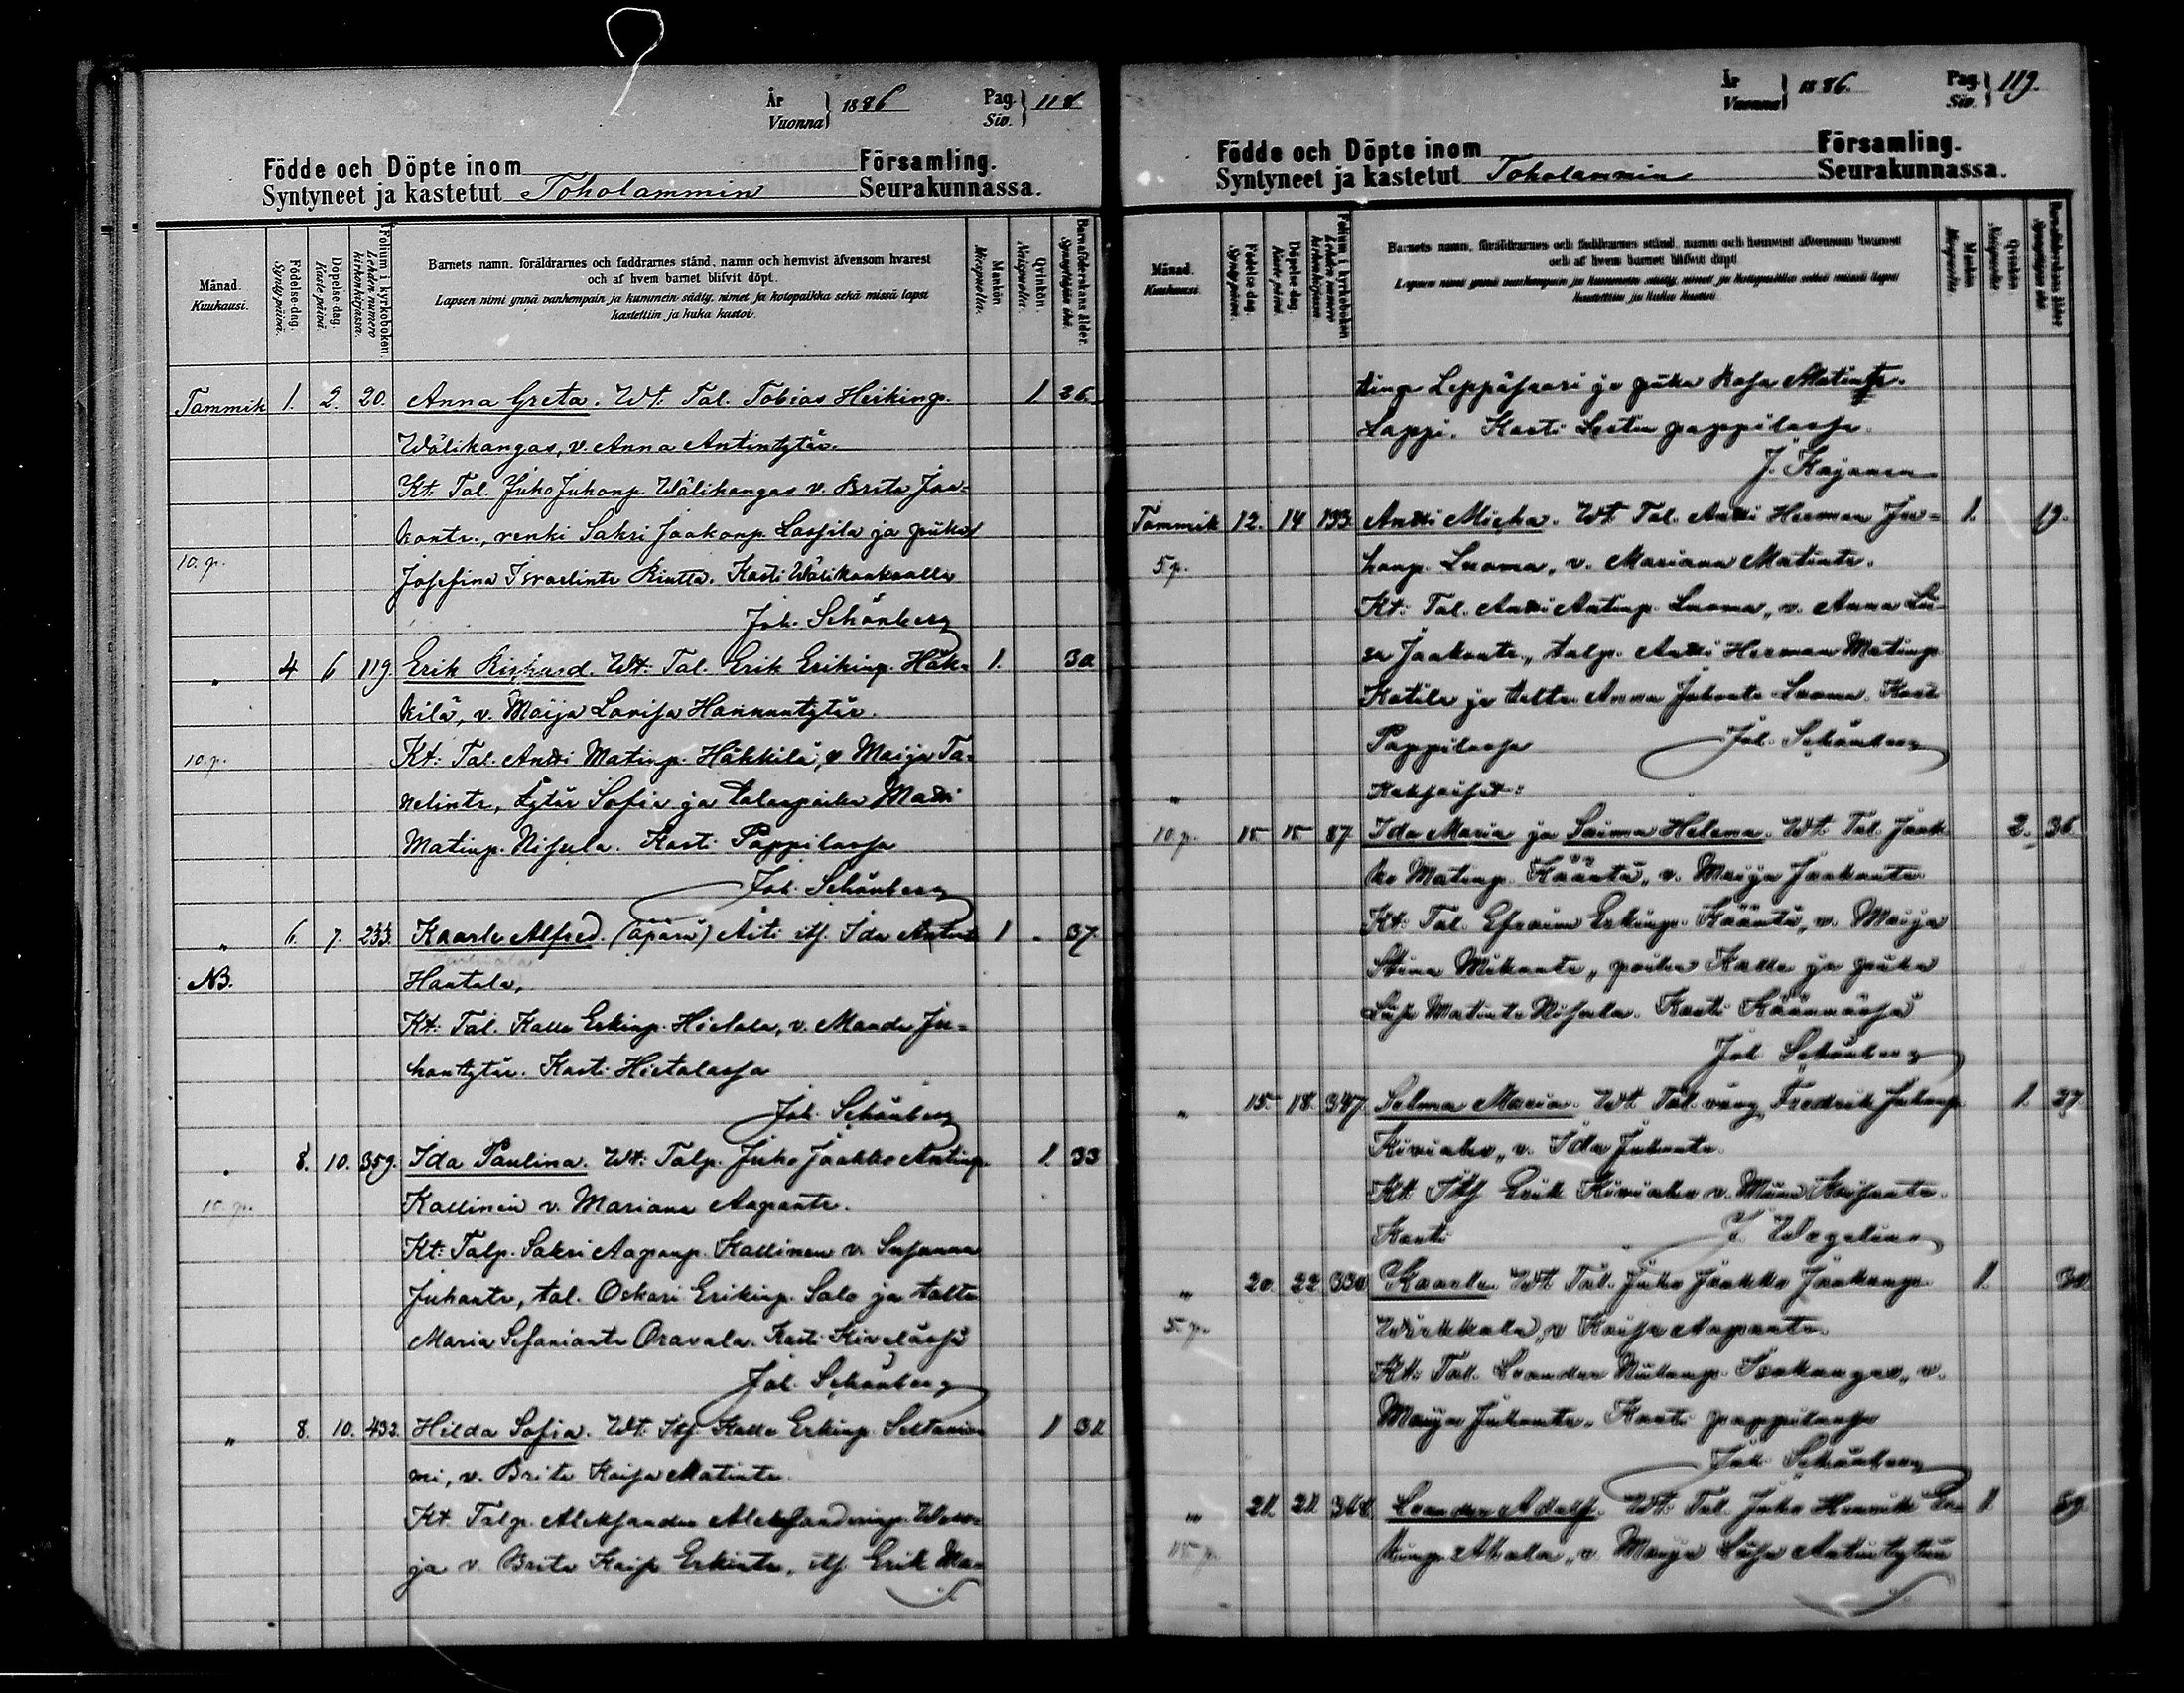 År
Vuonna } 1886 Pag.
Siv. } 118
Födde och Döpte inom Församling.
Syntyneet ja kastetut Toholammin Seurakunnassa.
Månad. Kuukausi.
Födelse-dag. Syntypäivä.
Döpelse-dag. Kastepäivä.
Folium i kyrkoboken. Lehden numero kirkonkirjassa.
Barnets namn, föräldrarnes och faddrarnes stånd, namn och hemvist äfvensom hvarest
och af hvem barnet blifvit döpt.
Lapsen nimi ynnä vanhempain ja kummein sääty, nimet ja kotopaikka sekä missä lapsi
kastettiin ja kuka kastoi.
Mankön. Miespuolia.
Qvinkön. Naispuolia.
Barnaföderskans ålder. Synnyttäjän ikä.
Tammik 1. 2. 20. Anna Greta. Wt: Tal. Tobias Heikinp. 1. 26.
Wälikangas, v. Anna Antintytär.
Kt: Tal. Juho Juhonp. Wälikangas v. Brita Jaa-
kontr., renki Sakri Jaakonp. Lassila ja piika
10. p. Josefina Israelintr Rintta. Kasti Wälikankaalla
Joh. Schönberg
" 4 6 119. Erik Richard. Wt: Tal. Erik Erikinp. Häk- 1. 30
kilä, v. Maija Lovisa Hannuntytär.
10. p. Kt: Tal. Antti Matinp. Häkkilä, v Maija Ta-
nelintr, tytär Sofia ja talonpoika Matti
Matinp. Nisula. Kasti Pappilassa
Joh. Schönberg
" 6. 7. 233. Kaarle Alfred. (äpärä) Äiti its. Ida Antintr 1 37.
NB. Hautala,
Kt: Tal. Kalle Erkinp. Hietala, v. Maada Ju-
hontytär. Kasti Hietalassa
Joh. Schönberg
" 8. 10. 359. Ida Paulina. Wt: Talp. Juho Jaakko Antinp. 1. 33
10. p. Kallinen v. Mariana Aapontr.
Kt: Talp. Sakri Aaponp. Kallinen v. Susanna
Juhontr, tal. Oskari Erikinp. Salo ja taltr
Maria Sefaniantr Oravala. Kasti Kivelässä
Joh. Schönberg
" 8. 10. 432. Hilda Sofia. Wt: Its. Kalle Erkinp. 1 31
mi, v. Brita Kaisa Matintr.
Kt. Talp. Aleksander Aleksanderinp.
ja v. Brita Kaisa Erkintr, its. Erik
År
Vuonna } 1886. Pag.
Siv. } 119.
Födde och Döpte inom Församling.
Syntyneet ja kastetut Toholammin Seurakunnassa.
Månad. Kuukausi.
Födelse-dag. Syntypäivä.
Döpelse-dag. Kastepäivä.
Folium i kyrkoboken. Lehden numero kirkonkirjassa.
Barnets namn, föräldrarnes och faddrarnes stånd, namn och hemvist äfvensom hvarest
och af hvem barnet blifvit döpt.
Lapsen nimi ynnä vanhempain ja kummein sääty, nimet ja kotopaikka sekä missä lapsi
kastettiin ja kuka kastoi.
Mankön. Miespuolia.
Qvinkön. Naispuolia.
Barnaföderskans ålder. Synnyttäjän ikä.
tinp Leppäsaari ja piika Kaisa Matintr.
Lappi. Kasti Lestin pappilassa.
J. Kajanen
Tammik 12. 14 193. Antti Mieha. Wt: Tal. Antti Herman Ju- 1. 19.
5 p. honp. Luoma, v. Mariana Matintr.
Kt: Tal. Antti Antinp. Luoma, v. Anna Lii-
sa Jaakontr, talp. Antti Herman Matinp
Kotila ja taltr Anna Juhontr Luoma. Kasti
Pappilassa Joh. Schönberg
" Kaksoiset:
10 p. 15 15 87. Ida Maria ja Saima Helena. Wt: Tal. Jaak- 2. 36
ko Matinp. Kääntä, v. Maija Jaakontr
Kt: Tal. Efraim Erkinp. Kääntä, v. Maija
Stina Mikontr, poika Kalle ja piika
Liisa Matintr Nisula. Kasti Käännässä
Joh Schönberg
" 15. 18. 347. Selma Maria. Wt. Tal. väng Fredrik Juhonp 1. 27
Kiviaho, v. Ida Juhontr.
Kt: Its Erik Kiviaho v. Miina
Kasti J. Wegelius
" 20. 22 330 Kaarle. Wt: Tal. Juho Jaakko Jaakonp. 1. 30.
5. p. Wirkkala, v Kaisa Aapontr.
Kt: Tal. Leander Isokangas, v.
Maija Juhontr. Kasti pappilassa
Joh. Schönberg
" 21. 21. 368. Leander Adolf. Wt: Tal. Juho Henrik Er- 1.
10 p. kinp. Ahola, v. Maija Liisa Antintytär